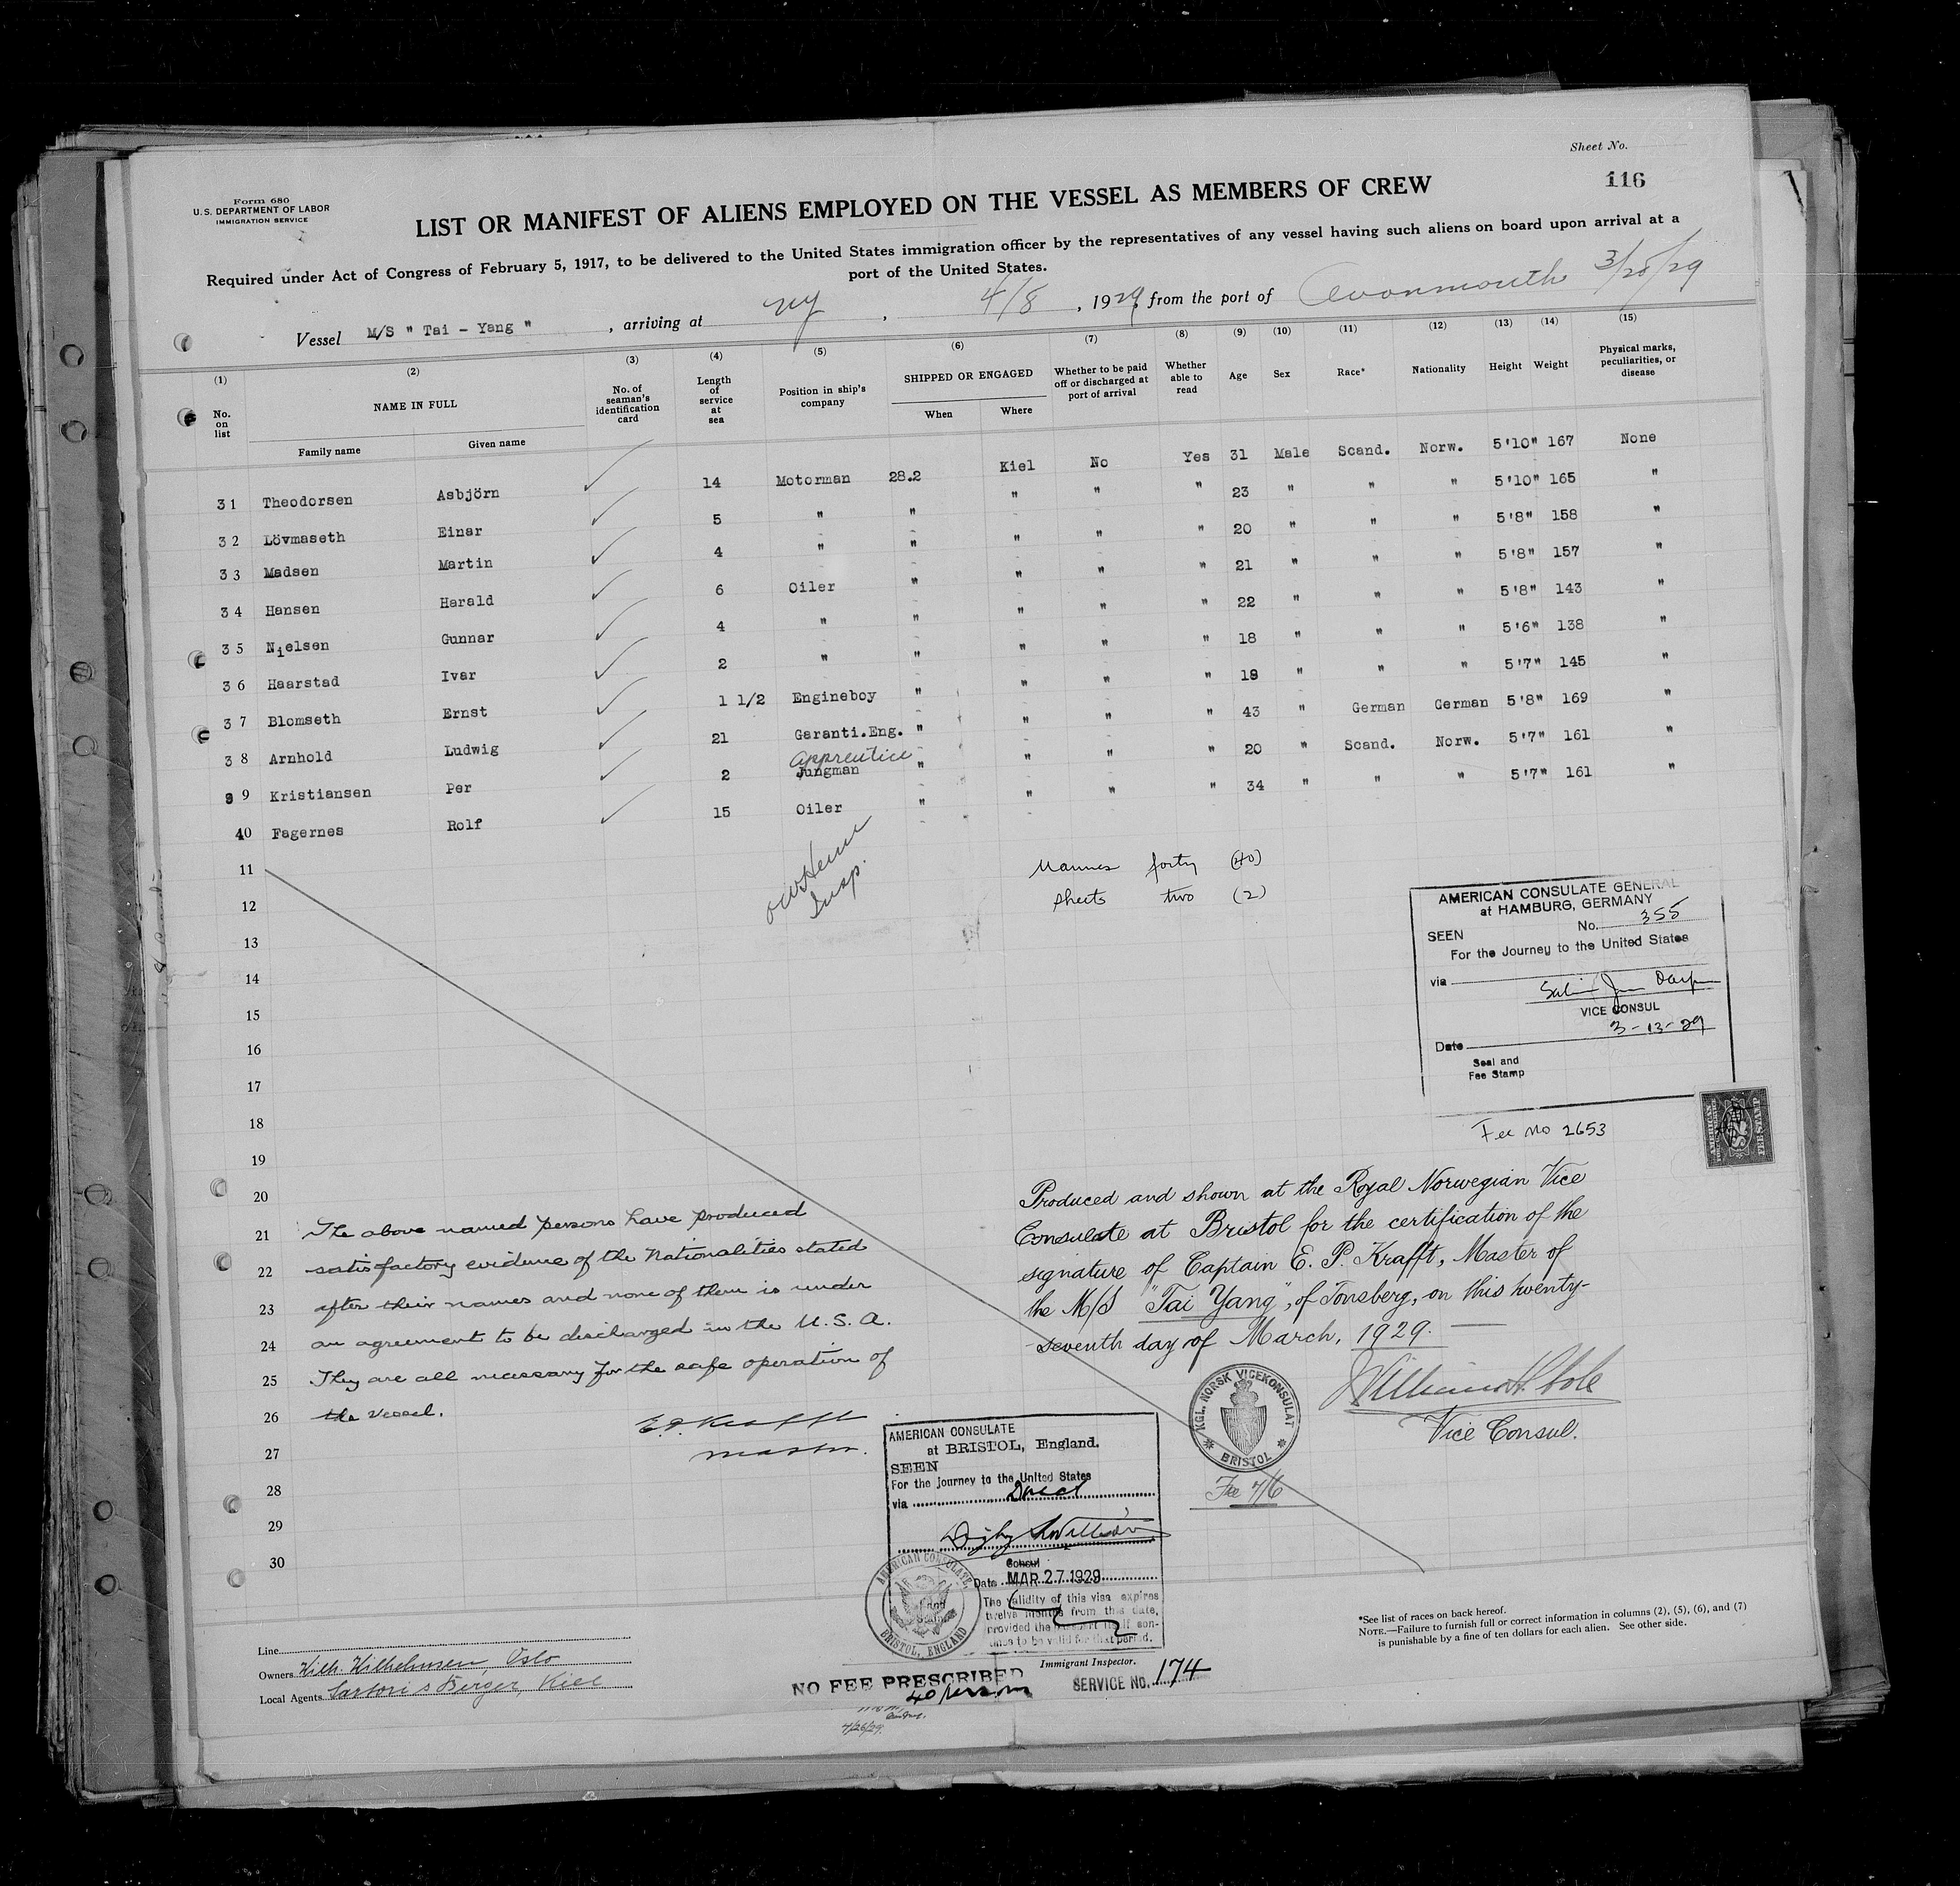 Sheet No.
116
Form 680
U.S. DEPARTMENT OF LABOR
IMMIGRATION SERVICE
LIST OR MANIFEST OF ALIENS EMPLOYED ON THE VESSEL AS MEMBERS OF CREW
Required under Act of Congress of February 5, 1917, to be delivered to the United States immigration officer by the representatives of any vessel having such aliens on board upon arrival at a
port of the United States.
Vessel M/S " Tai - Yang " , arriving at NY , 4/8 , 1929, from the port of Avonmouth 3/28/29
(1) (2) (3) (4) (5) (6) (7) (8) (9) (10) (11) (12) (13) (14) (15)
No. on list NAME IN FULL Family name Given name No. of seaman's identification card Length of service at sea Position in ship's company SHIPPED OR ENGAGED When Where Whether to be paid off or discharged at port of arrival Whether able to read Age Sex Race* Nationality Height Weight Physical marks, peculiarities, or disease
31 Theodorsen Asbjörn 14 Motorman 28.2 Kiel No Yes 31 Male Scand. Norw. 5'10" 167 None
32 Lövmaseth Einar 5 " " " " " 23 " " " 5'10" 165 "
33 Madsen Martin 4 " " " " " 20 " " " 5'8" 158 "
34 Hansen Harald 6 Oiler " " " " 21 " " " 5'8" 157 "
35 Nielsen Gunnar 4 " " " " " 22 " " " 5'8" 143 "
36 Haarstad Ivar 2 " " " " " 18 " " " 5'6" 138 "
37 Blomseth Ernst 1 1/2 Engineboy " " " " 19 " " " 5'7" 145 "
38 Arnhold Ludwig 21 Garanti.Eng. " " " " 43 " German German 5'8" 169 "
apprentice
39 Kristiansen Per 2 Jungman " " " " 20 " Scand. Norw. 5'7" 161 "
40 Fagernes Rolf 15 Oiler " " " " 34 " " " 5'7" 161 "
11
12
13
14
15
16
17
18
19
20
21
22
23
24
25
26
27
28
29
30
Insp.
Names forty (40)
Sheets two (2)
AMERICAN CONSULATE GENERAL
at HAMBURG, GERMANY
No. 355
SEEN
For the Journey to the United States
via
VICE CONSUL
3-13-29
Date
Seal and
Fee Stamp
Fee No 2653
AMERICAN
FEE STAMP
The above named persons have produced
satisfactory evidence of the Nationalities stated
after their names and none of them is under
an agreement to be discharged in the U.S.A.
They are all necessary for the safe operation of
the vessel.
E.P. Krafft
master.
Produced and shown at the Royal Norwegian Vice
Consulate at Bristol for the certification of the
signature of Captain E. P. Krafft, Master of
the M/S "Tai Yang", of Tönsberg, on this twenty-
seventh day of March, 1929.
William H. Cole
Vice Consul.
KGL. NORSK VICEKONSULAT
BRISTOL
Fee 7/6
AMERICAN CONSULATE
at BRISTOL, England.
SEEN
For the journey to the United States
via Direct
Consul
Date MAR 27 1929
The validity of this visa expires
twelve months from this date,
provided the passport itself con-
tinues to be valid for that period.
AMERICAN CONSULATE,
BRISTOL, ENGLAND
Line
Owners Wilh. Wilhelmsen, Oslo
Local Agents Sartori & Berger, Kiel
NO FEE PRESCRIBED
40 persons
Immigrant Inspector.
SERVICE No. 174
4/26/29.
*See list of races on back hereof.
NOTE.—Failure to furnish full or correct information in columns (2), (5), (6), and (7)
is punishable by a fine of ten dollars for each alien. See other side.